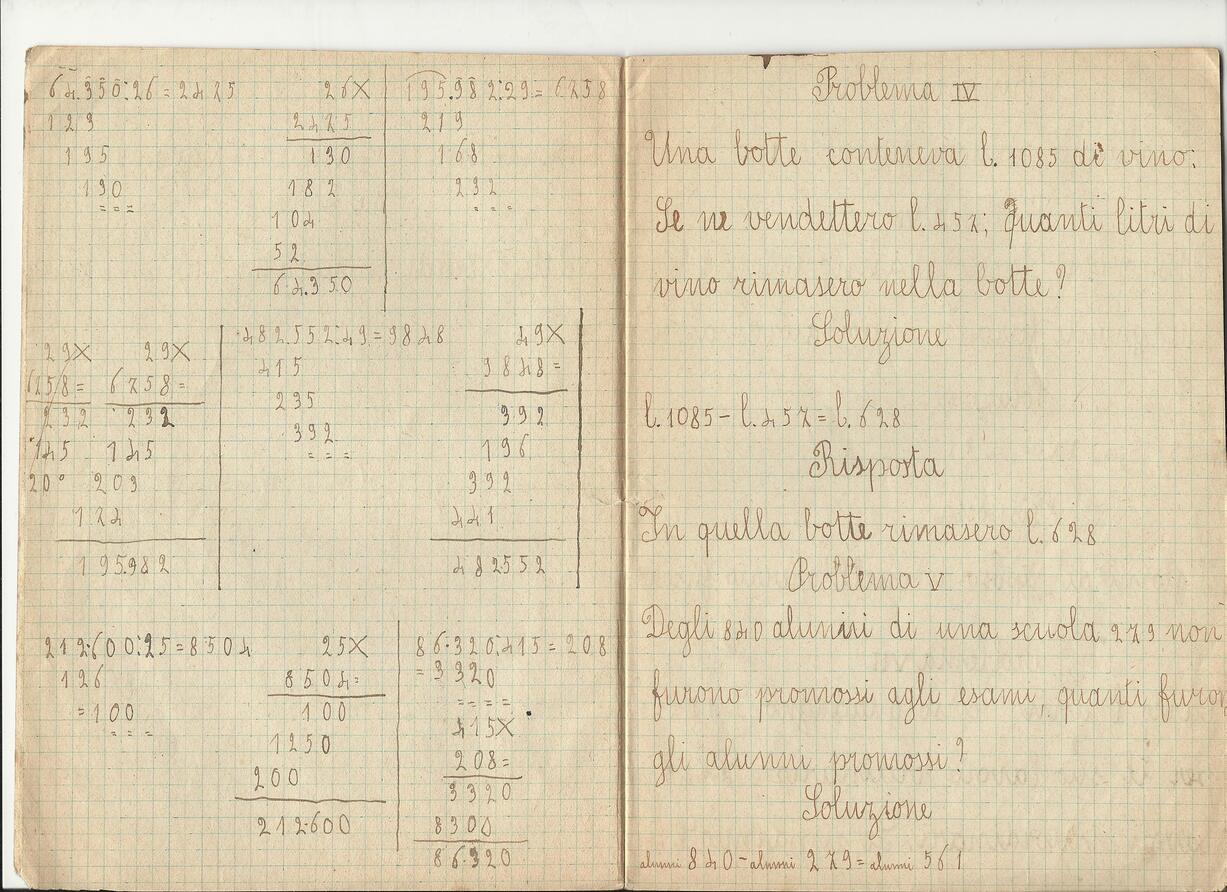 64.350:26=2475
123
195
130
===
26X
2475
130
182
104
52
64.350
195.982:29=6758
219
168
232
===
29X
6758=
232
145
20
29X
6758=
232
145
203
174
195.982
482.552:49=9848
415
235
392
===
49X
9848=
392
196
392
441
482552
212.600:25=8504
126
=100
===
25X
8504=
100
1250
200
212.600
86.320:415=208
=3320
====
415X
208=
3320
8300
86.320
Problema IV
Una botte conteneva l. 1085 di vino:
Se ne vendettero l. 457; quanti litri di
vino rimasero nella botte?
Soluzione
l. 1085 - l. 457 = l. 628
Risposta
In quella botte rimasero l. 628
Problema V
Degli 840 alunni di una scuola 279 non
furono promossi agli esami, quanti furon
gli alunni promossi?
Soluzione
alunni 840 - alunni 279 = alunni 561